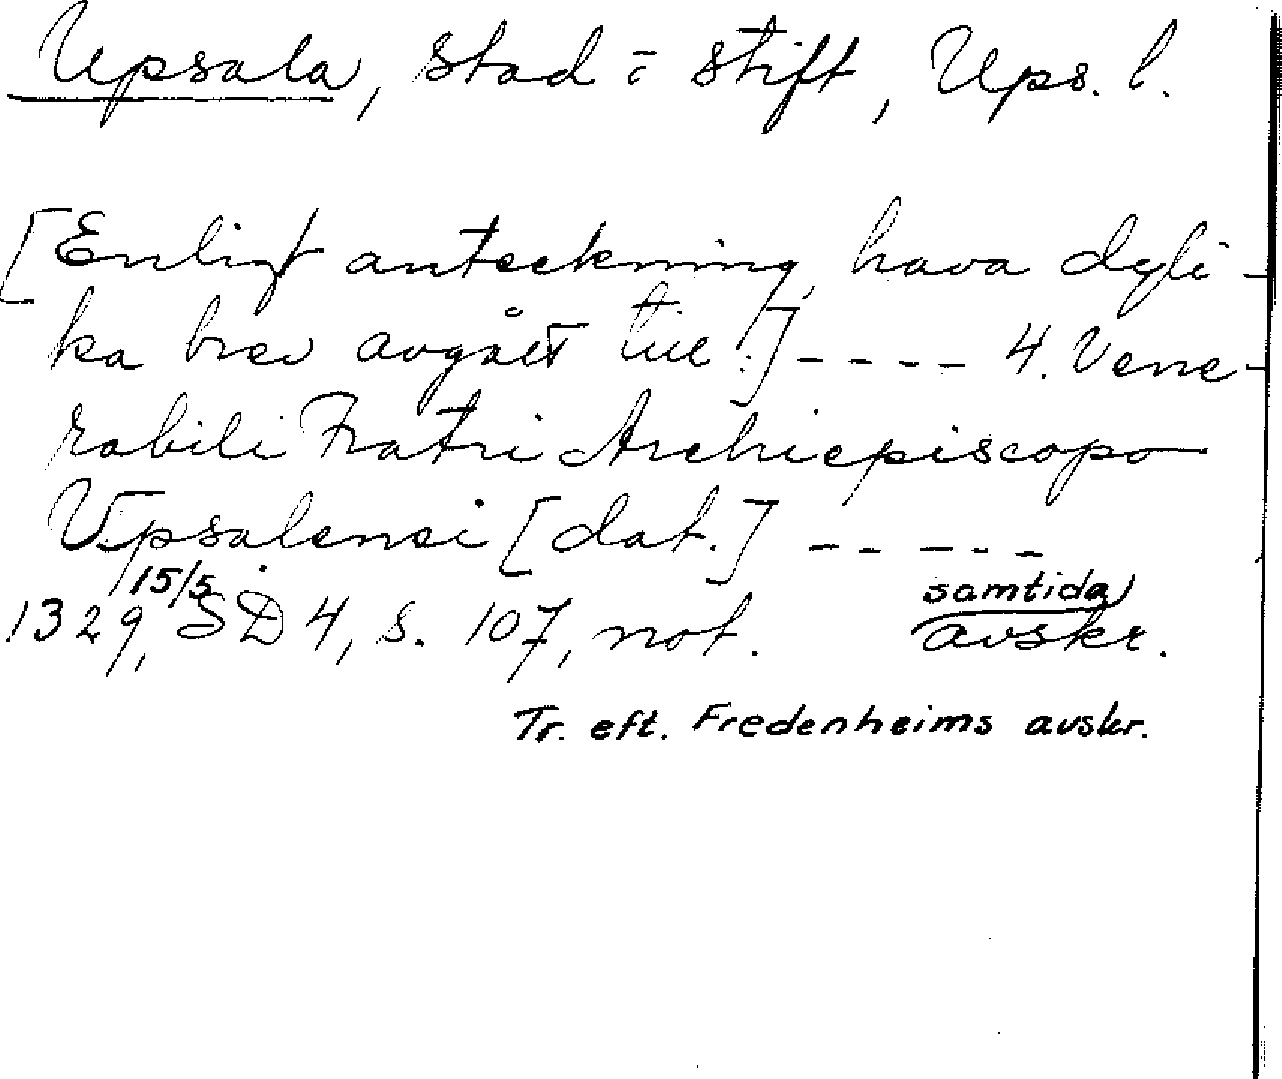 Upsala, stad o stift, Ups. l.
[Enligt anteckning, hava dyli-
ka brev avgått till:] ----- 4. Vene-
rabili Fratri Archiepiscopo
Vpsalensi [dat.] -----
15/5 samtida
1329, SD 4, s. 107, not. avskr.
Tr. eft. Fredenheims avskr.